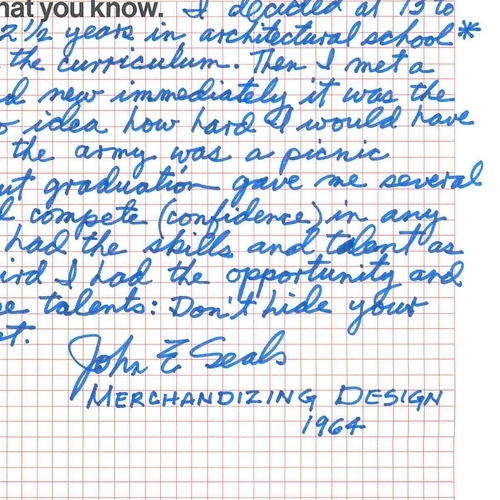 hat you know. I decided at 13 to
2 1/2 years in architectural school*
the curriculum. Then I met a
d new immediately it was the
o idea how hard I would have
the army was a picnic
ut graduation gave me several
d compete (confidence) in any
had the skills and talent as
ird I had the opportunity and
e talents: Don't hide your
et.
John E Seals
MERCHANDIZING DESIGN
1964